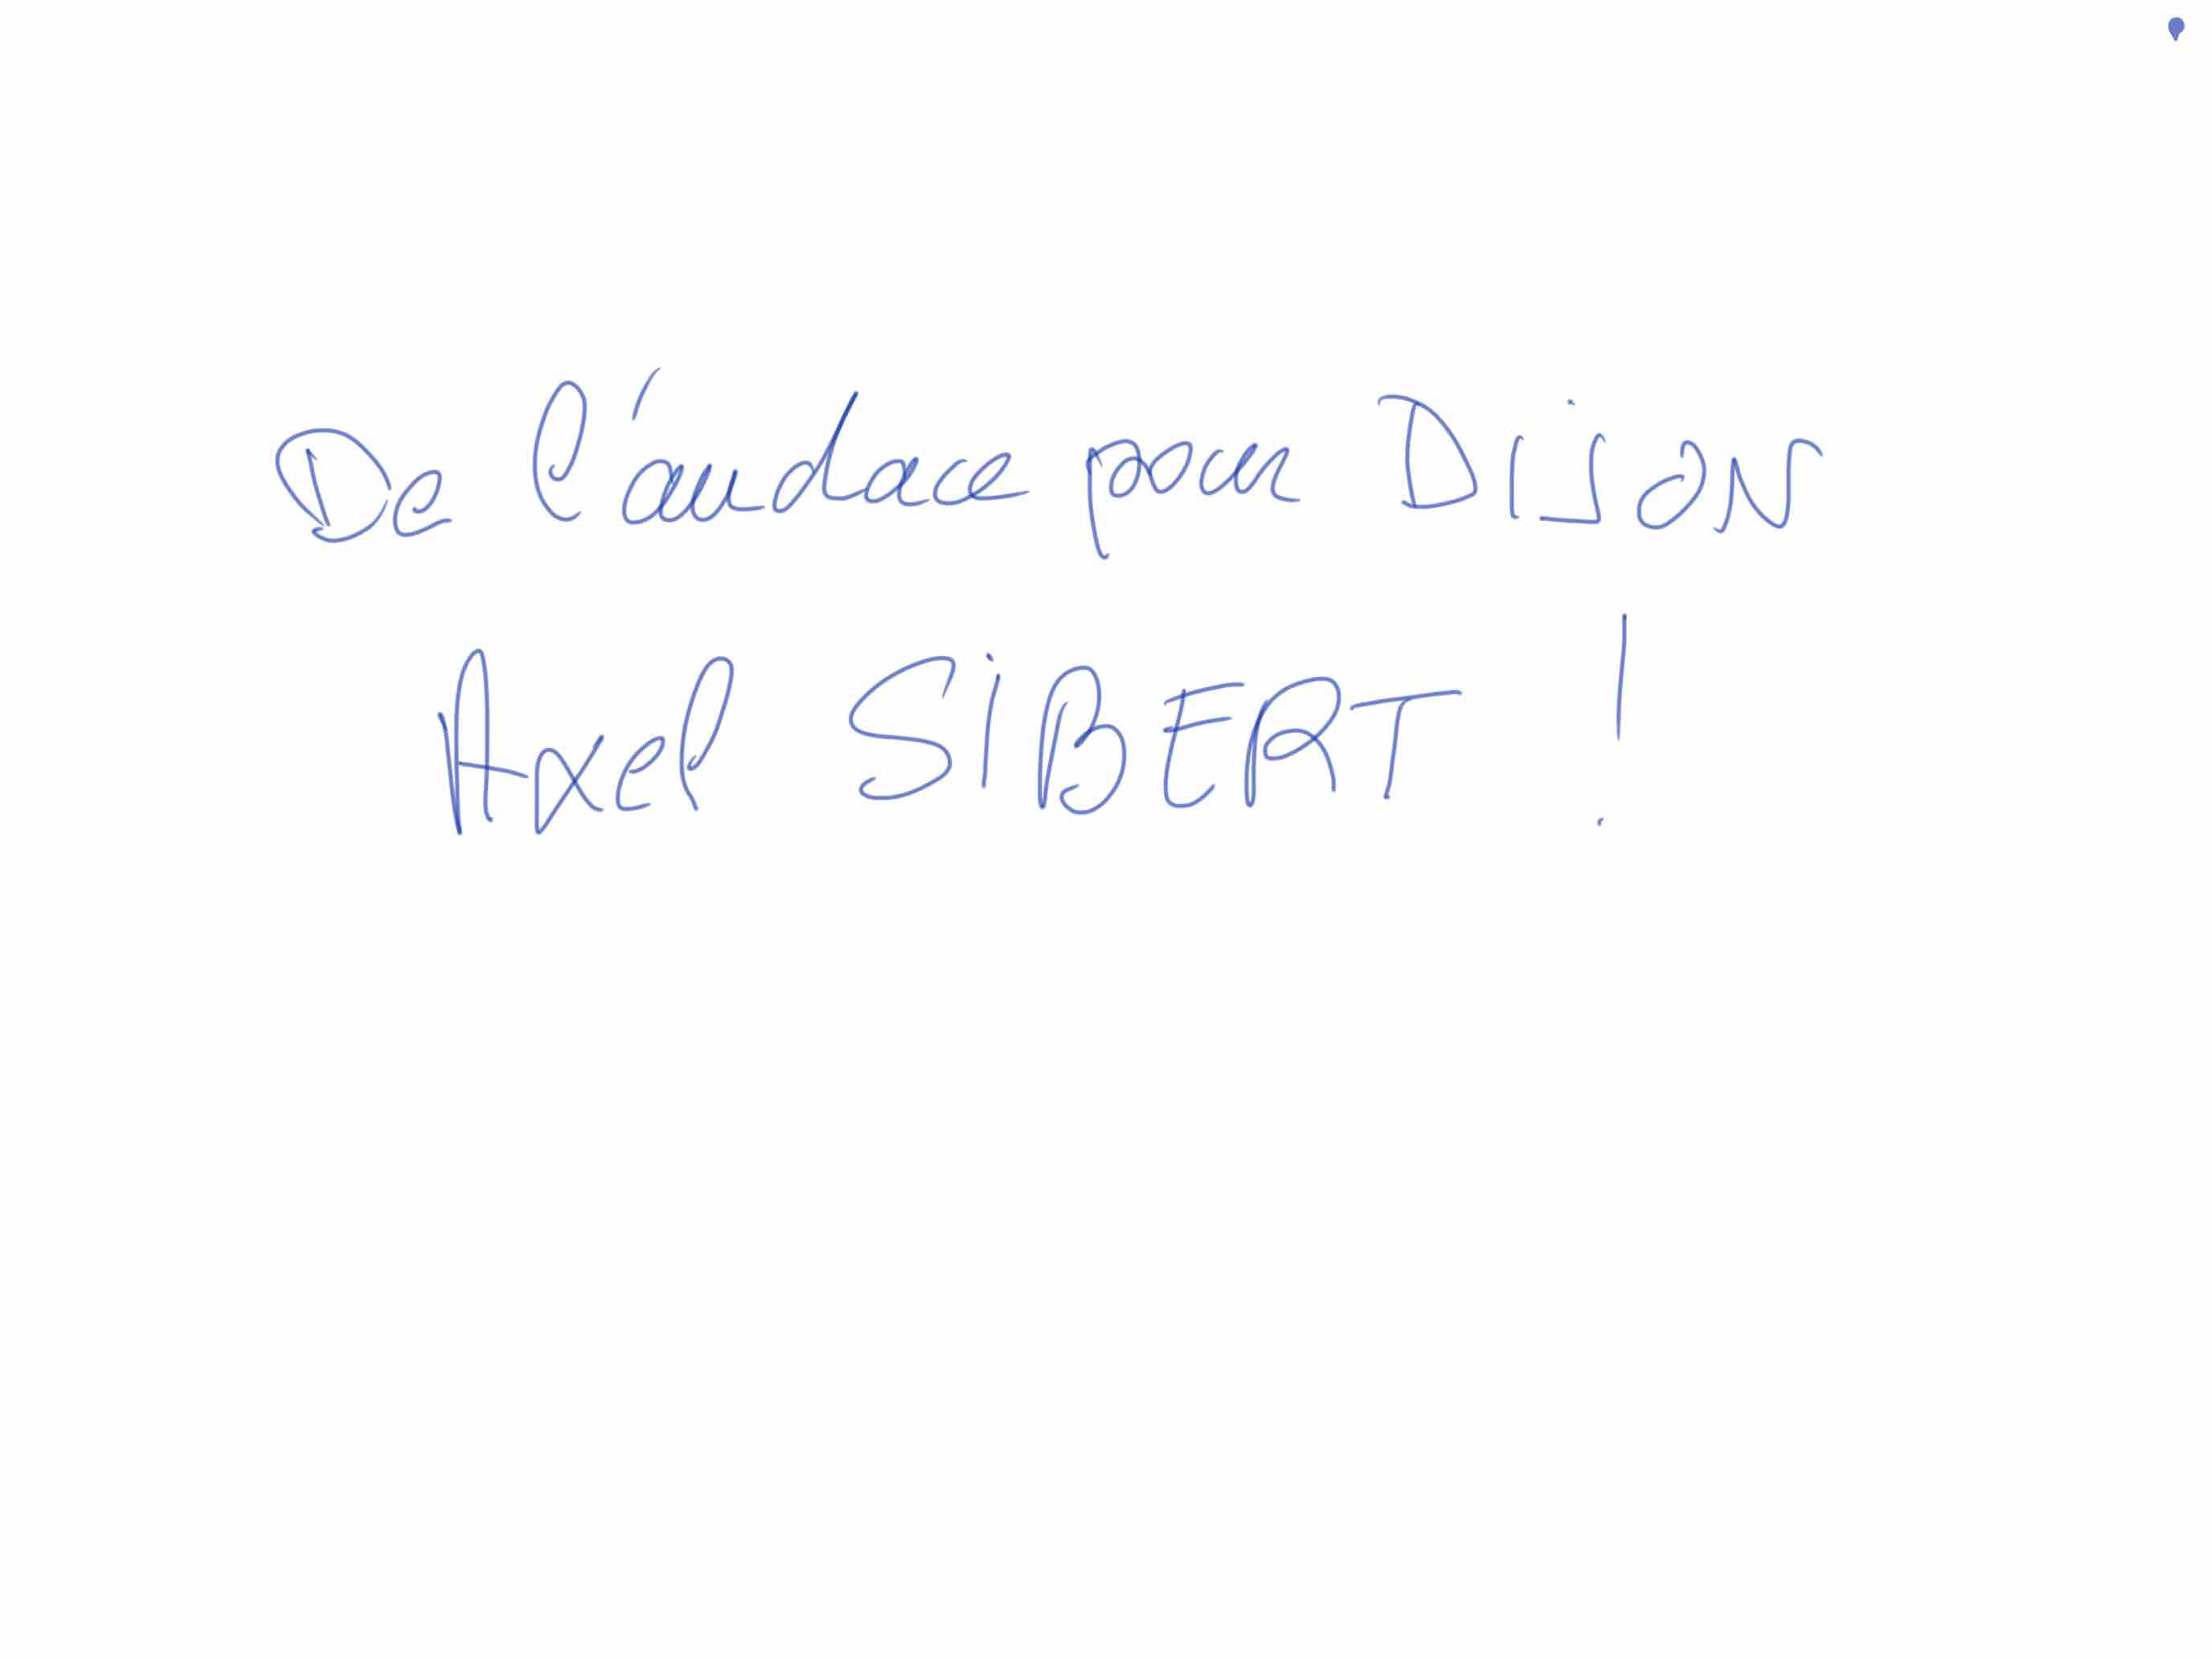 De l'audace pour Dijon
Axel SIBERT !